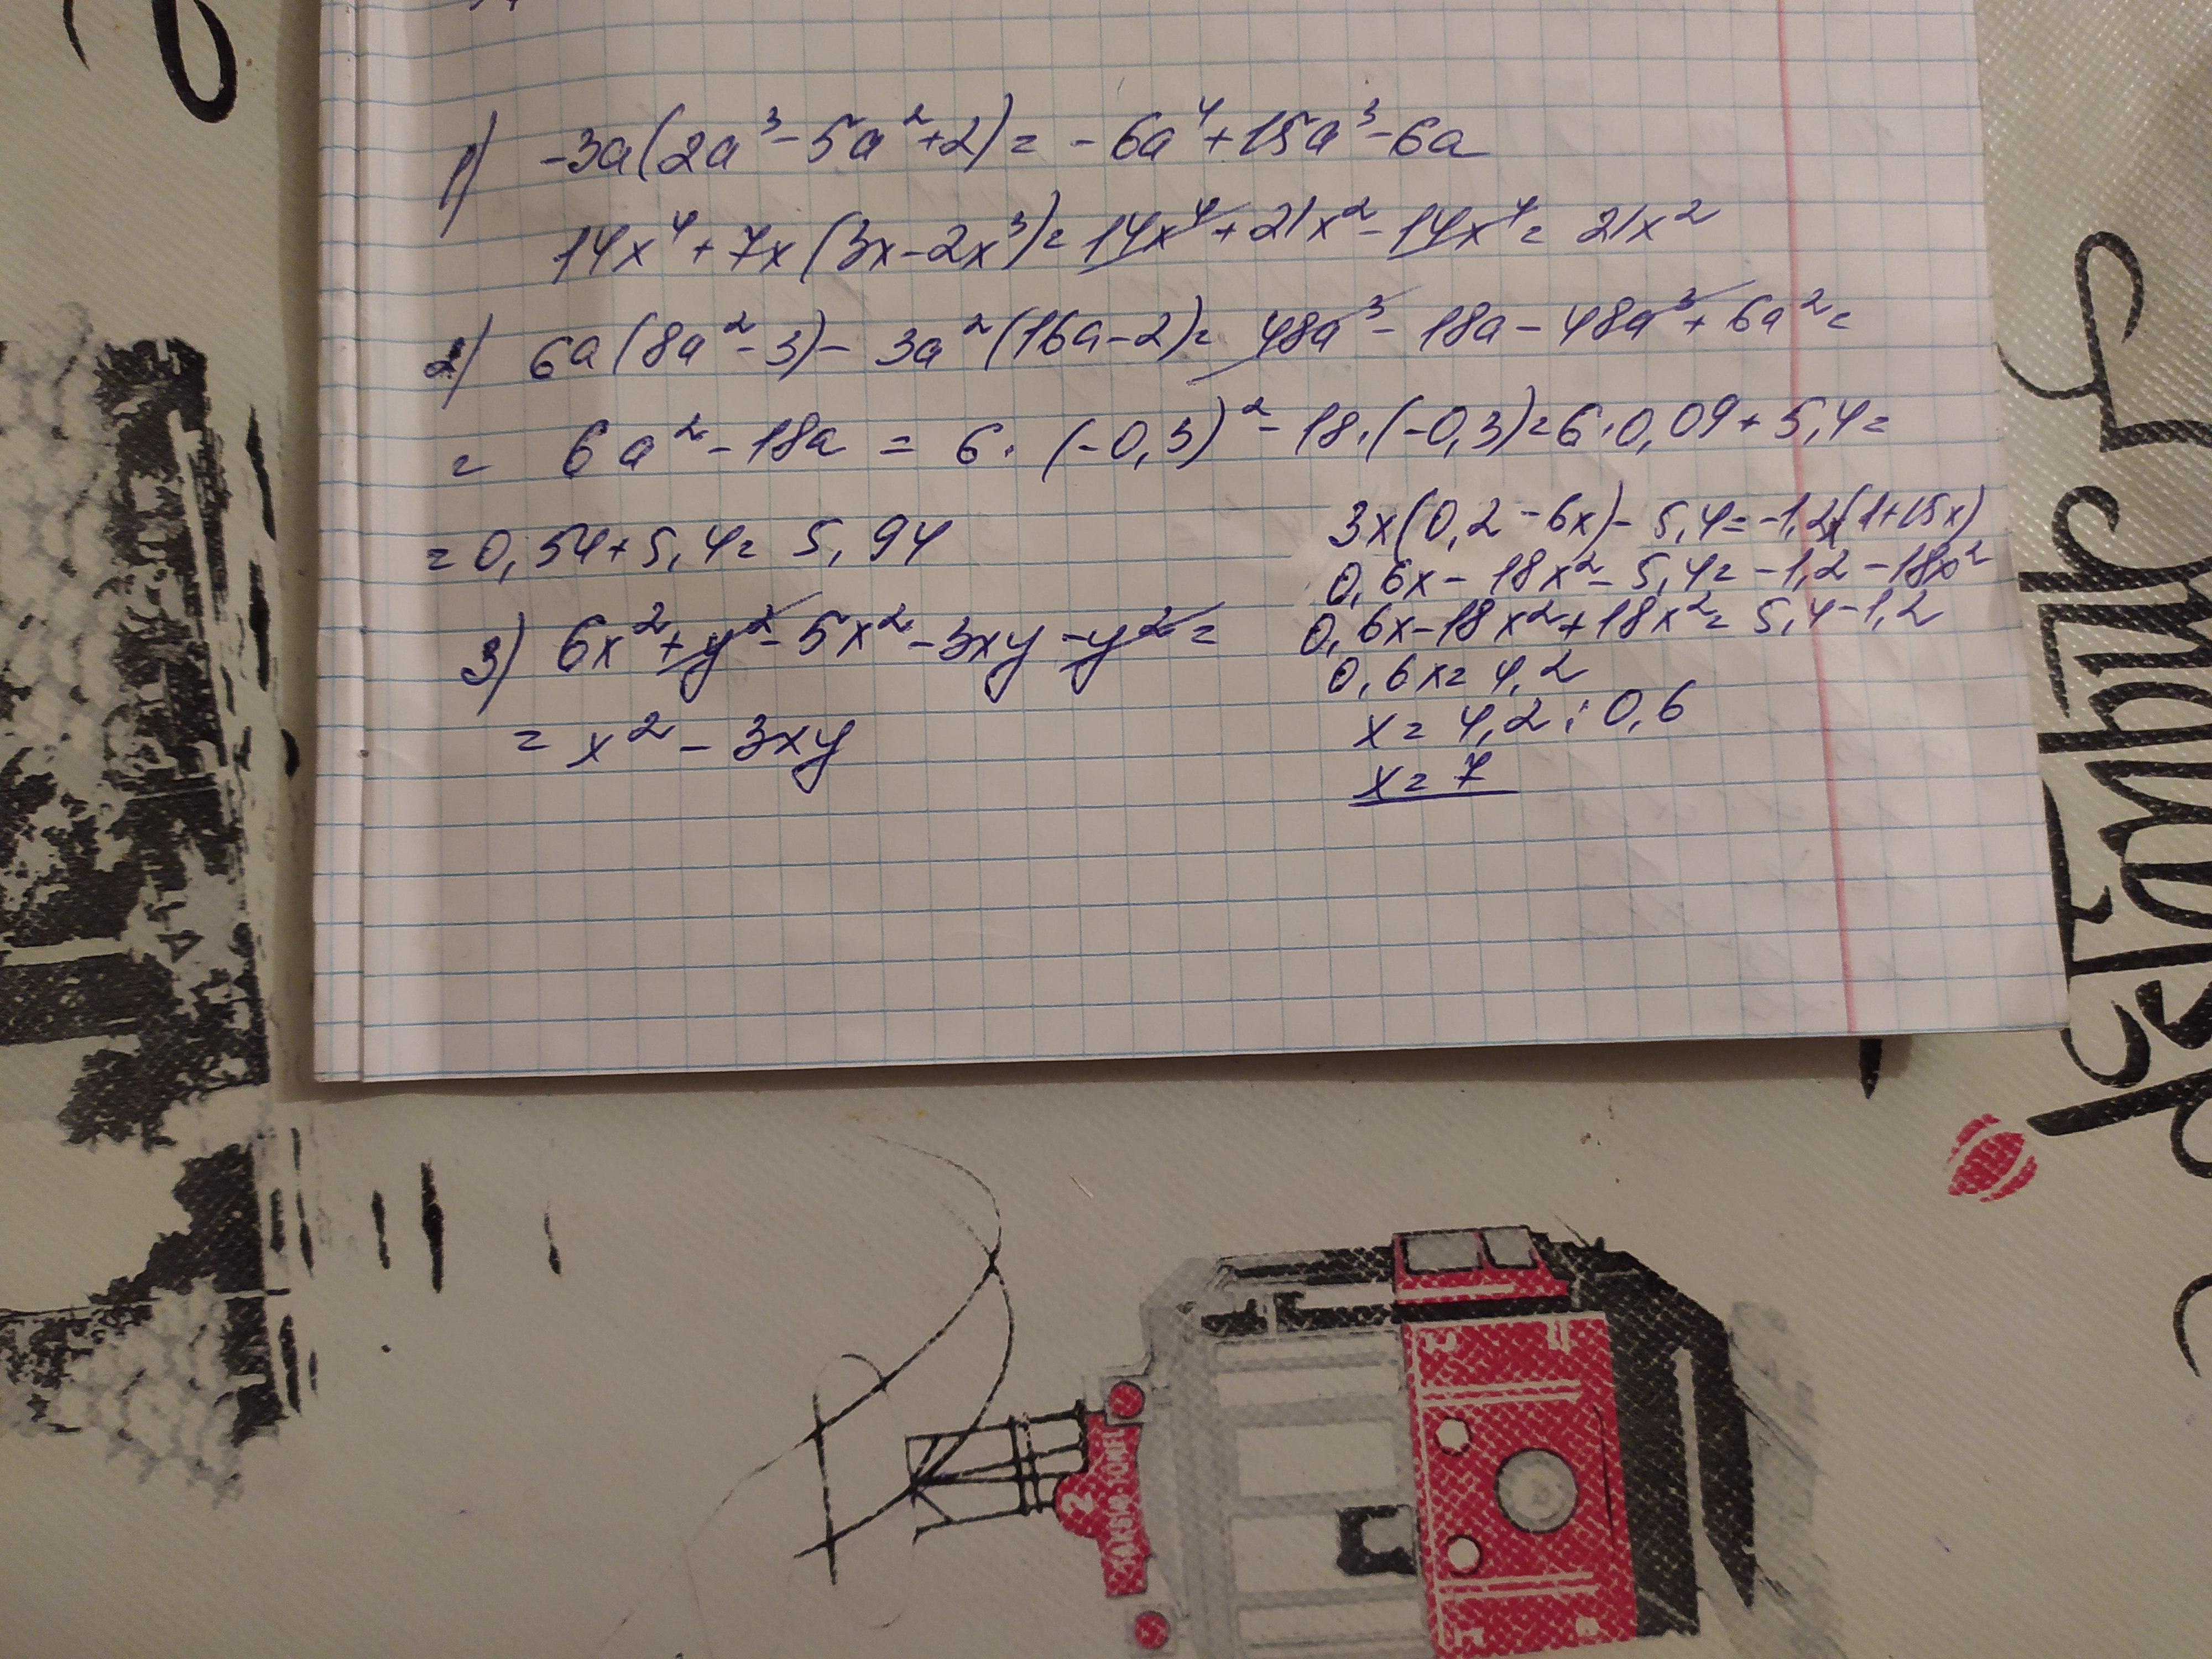 1) -3a(2a³-5a²+2)= -6a⁴+15a³-6a
14x⁴+7x(3x-2x³)=14x⁴+21x²-14x⁴= 21x²
2) 6a(8a²-3)- 3a²(16a-2)= 48a³- 18a-48a³+6a²=
= 6a²-18a = 6·(-0,3)²-18·(-0,3)=6·0,09+5,4=
=0,54+5,4= 5,94
3) 6x²+y²-5x²-3xy-y²=
= x²-3xy
3x(0,2-6x)-5,4=-1,2x(1+15x)
0,6x-18x²-5,4=-1,2-18x²
0,6x-18x²+18x²=5,4-1,2
0,6x=4,2
x=4,2:0,6
x=7
istanbul
2
TAKSİM TÜNEL